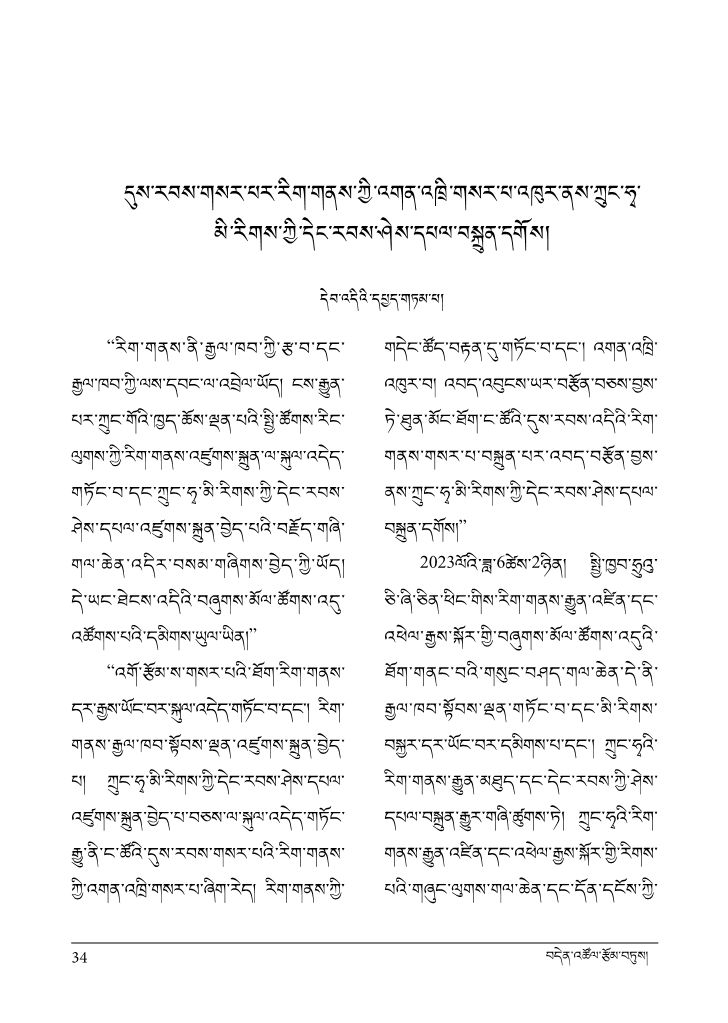 དུས་རབས་གསར་པར་རིག་གནས་ཀྱི་འགན་འཁྲི་གསར་པ་འཁུར་ནས་ཀྲུང་ཧྭ་
མི་རིགས་ཀྱི་དེང་རབས་ཤེས་དཔལ་བསྐྲུན་དགོས།
དེབ་འདིའི་དཔྱད་གཏམ་པ།
“རིག་གནས་ནི་རྒྱལ་ཁབ་ཀྱི་རྩ་བ་དང་
རྒྱལ་ཁབ་ཀྱི་ལས་དབང་ལ་འབྲེལ་ཡོད། ངས་རྒྱུན་
པར་ཀྲུང་གོའི་ཁྱད་ཆོས་ལྡན་པའི་སྤྱི་ཚོགས་རིང་
ལུགས་ཀྱི་རིག་གནས་འཛུགས་སྐྲུན་ལ་སྐུལ་འདེད་
གཏོང་བ་དང་ཀྲུང་ཧྭ་མི་རིགས་ཀྱི་དེང་རབས་
ཤེས་དཔལ་འཛུགས་སྐྲུན་བྱེད་པའི་བརྗོད་གཞི་
གལ་ཆེན་འདིར་བསམ་གཞིགས་བྱེད་ཀྱི་ཡོད།
དེ་ཡང་ཐེངས་འདིའི་བཞུགས་མོལ་ཚོགས་འདུ་
འཚོགས་པའི་དམིགས་ཡུལ་ཡིན།”
“འགོ་རྩོམ་ས་གསར་པའི་ཐོག་རིག་གནས་
དར་རྒྱས་ཡོང་བར་སྐུལ་འདེད་གཏོང་བ་དང་། རིག་
གནས་རྒྱལ་ཁབ་སྟོབས་ལྡན་འཛུགས་སྐྲུན་བྱེད་
པ། ཀྲུང་ཧྭ་མི་རིགས་ཀྱི་དེང་རབས་ཤེས་དཔལ་
འཛུགས་སྐྲུན་བྱེད་པ་བཅས་ལ་སྐུལ་འདེད་གཏོང་
རྒྱུ་ནི་ང་ཚོའི་དུས་རབས་གསར་པའི་རིག་གནས་
ཀྱི་འགན་འཁྲི་གསར་པ་ཞིག་རེད། རིག་གནས་ཀྱི་
གདེང་ཚོད་བརྟན་དུ་གཏོང་བ་དང་། འགན་འཁྲི་
འཁུར་བ། འབད་འབུངས་ཡར་བརྩོན་བཅས་བྱས་
ཏེ་ཐུན་མོང་ཐོག་ང་ཚོའི་དུས་རབས་འདིའི་རིག་
གནས་གསར་པ་བསྐྲུན་པར་འབད་བརྩོན་བྱས་
ནས་ཀྲུང་ཧྭ་མི་རིགས་ཀྱི་དེང་རབས་ཤེས་དཔལ་
བསྐྲུན་དགོས།”
2023ལོའི་ཟླ་6ཚེས་2ཉིན། སྤྱི་ཁྱབ་ཧྲུའུ་
ཅི་ཞི་ཅིན་ཕིང་གིས་རིག་གནས་རྒྱུན་འཛིན་དང་
འཕེལ་རྒྱས་སྐོར་གྱི་བཞུགས་མོལ་ཚོགས་འདུའི་
ཐོག་གནང་བའི་གསུང་བཤད་གལ་ཆེན་དེ་ནི་
རྒྱལ་ཁབ་སྟོབས་ལྡན་གཏོང་བ་དང་མི་རིགས་
བསྐྱར་དར་ཡོང་བར་དམིགས་པ་དང་། ཀྲུང་ཧྭའི་
རིག་གནས་རྒྱུན་མཐུད་དང་དེང་རབས་ཀྱི་ཤེས་
དཔལ་བསྐྲུན་རྒྱུར་གཞི་ཚུགས་ཏེ། ཀྲུང་ཧྭའི་རིག་
གནས་རྒྱུན་འཛིན་དང་འཕེལ་རྒྱས་སྐོར་གྱི་རིགས་
པའི་གཞུང་ལུགས་གལ་ཆེན་དང་དོན་དངོས་ཀྱི་
34
བདེན་འཚོལ་རྩོམ་བཏུས།